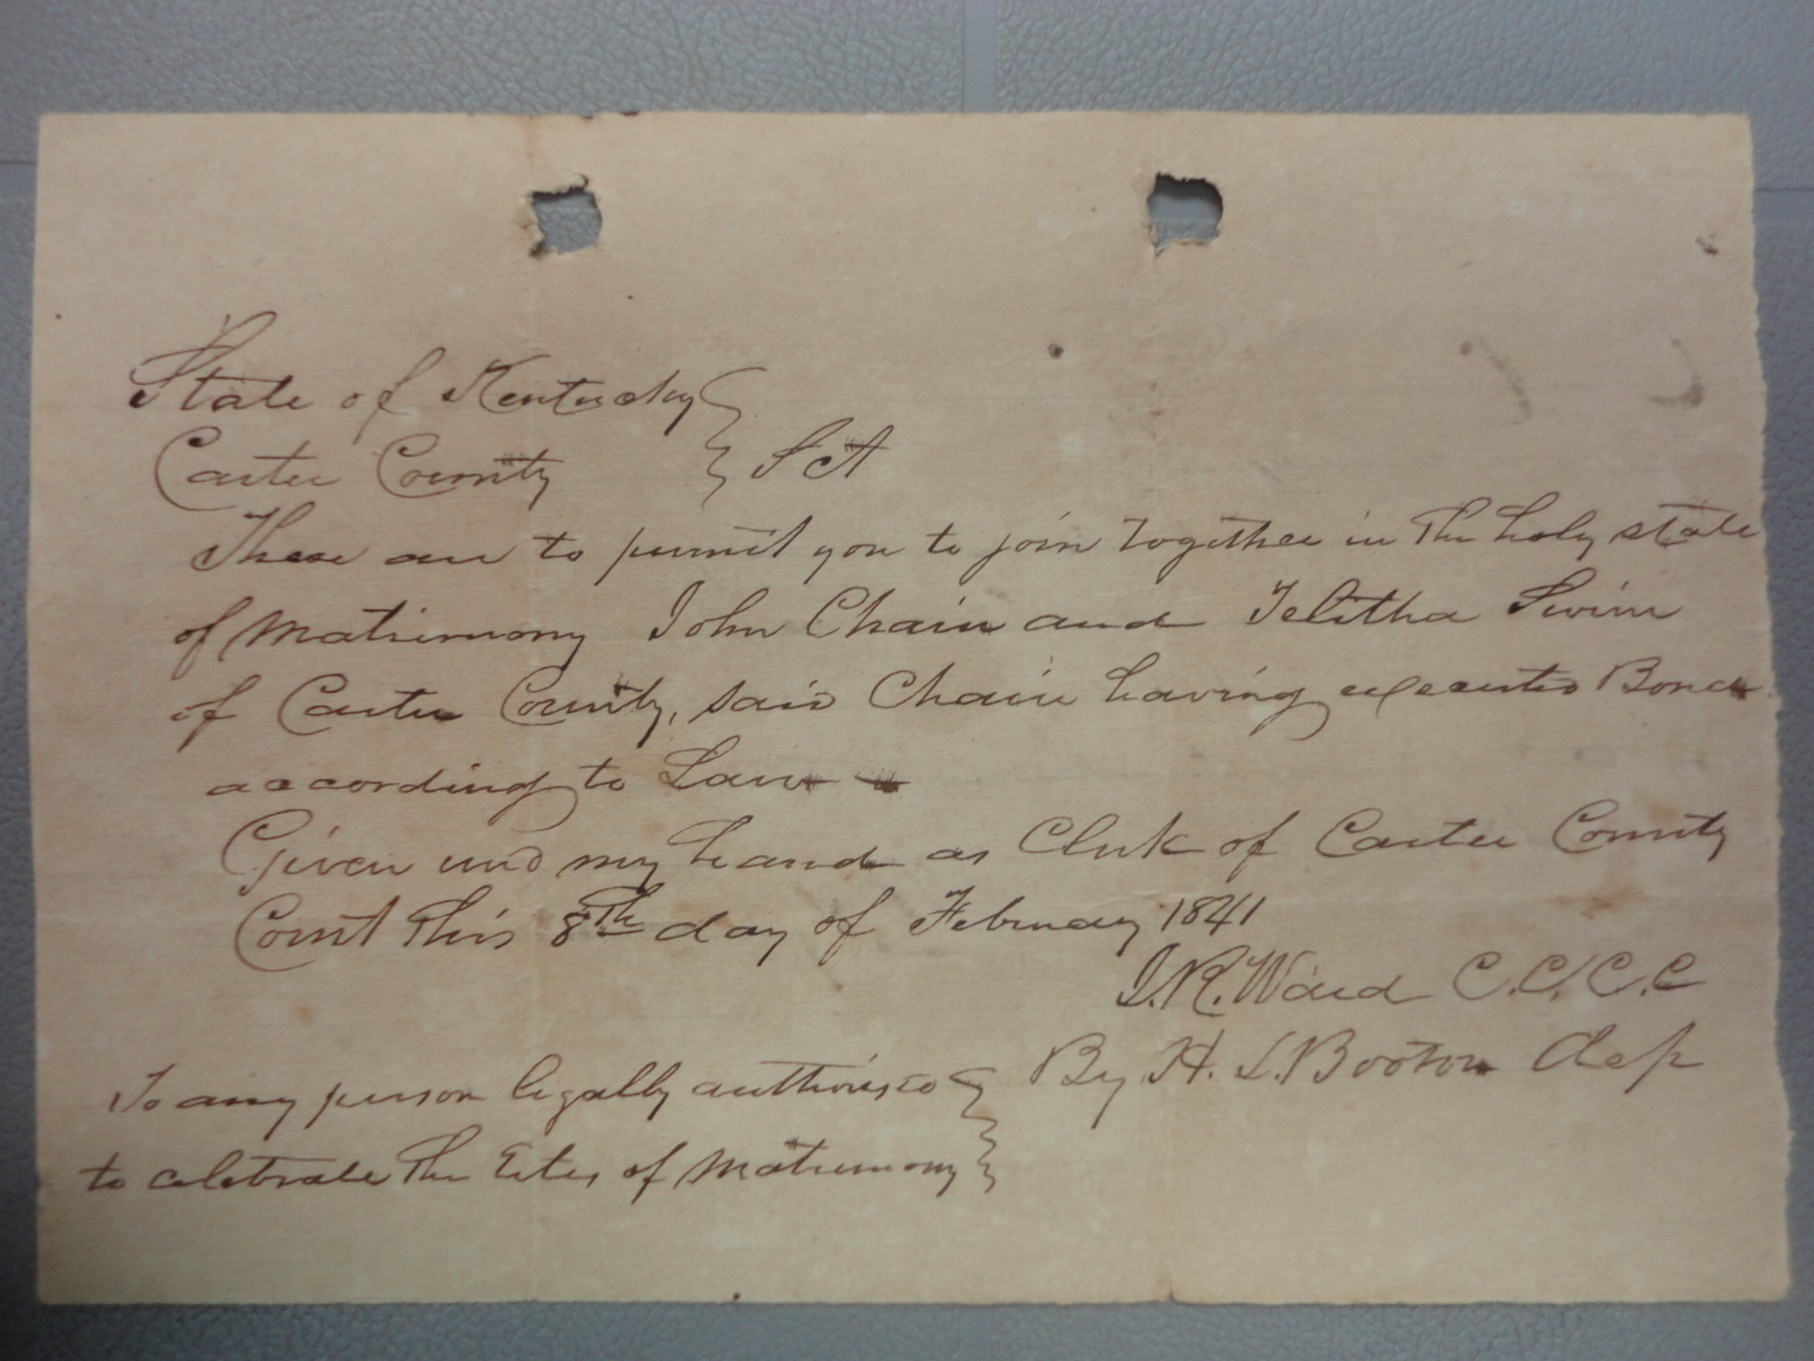 State of Kentucky
Carter County } Sct
These are to permit you to join together in the holy state
of matrimony John Chain and Telitha Swim
of Carter County, said Chain having executed Bond
according to Law
Given und my hand as Clerk of Carter County
Court this 8th day of February 1841
J. R. Ward C.C.C.C
By H. L. Booton Dep
To any person legally authorised
to celebrate the rites of matrimony